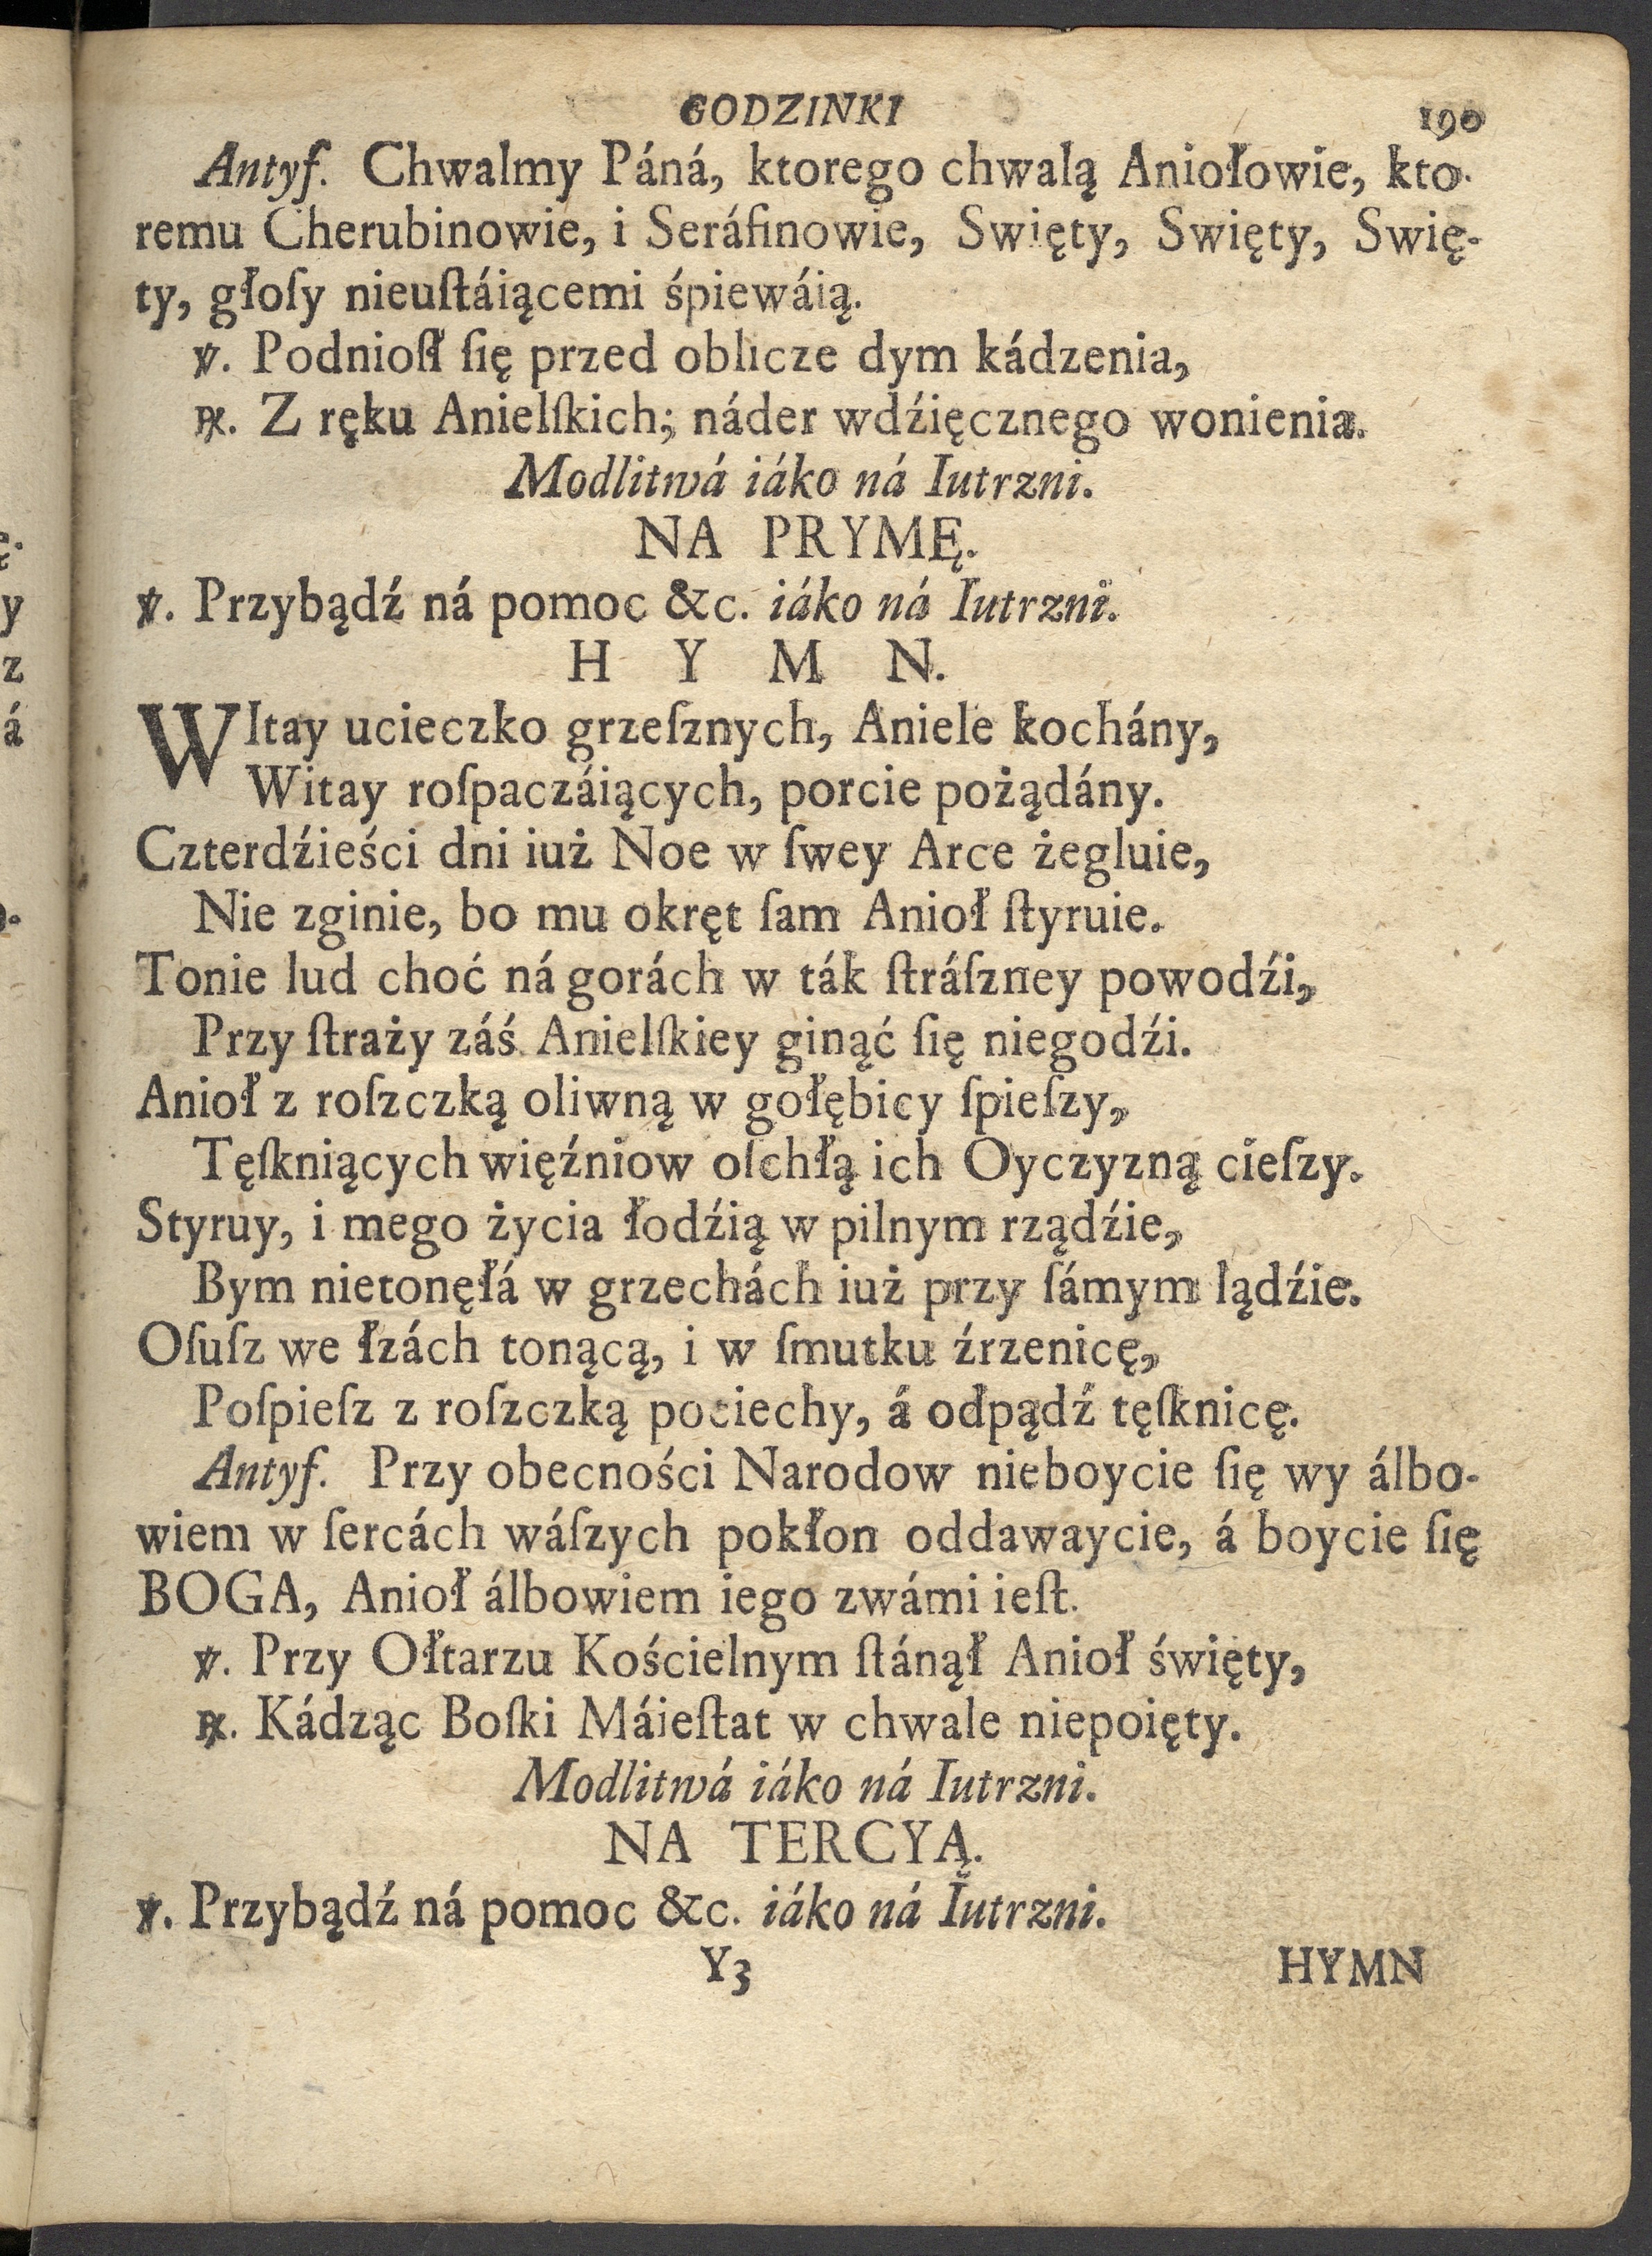 GODZINKI 190
Antyf. Chwalmy Páná, ktorego chwalą Aniołowie, kto-
remu Cherubinowie, i Seráfinowie, Swięty, Swięty, Swię-
ty, głoſy nieuſtáiącemi śpiewáią.
℣. Podnioſł ſię przed oblicze dym kádzenia,
℟. Z ręku Anielſkich; náder wdźięcznego wonienia.
Modlitwá iáko ná Iutrzni.
NA PRYMĘ.
℣. Przybądź ná pomoc &c. iáko ná Iutrzni.
H Y M N.
WItay ucieczko grzeſznych, Aniele kochány,
Witay roſpaczáiących, porcie pożądány.
Czterdźieści dni iuż Noe w ſwey Arce żegluie,
Nie zginie, bo mu okręt ſam Anioł ſtyruie.
Tonie lud choć ná gorách w ták ſtráſzney powodźi,
Przy ſtraży záś Anielſkiey ginąć ſię niegodźi.
Anioł z roſzczką oliwną w gołębicy ſpieſzy,
Tęſkniących więźniow oſchłą ich Oyczyzną cieſzy.
Styruy, i mego życia łodźią w pilnym rządźie,
Bym nietonęłá w grzechách iuż przy ſámym lądźie.
Oſuſz we łzách tonącą, i w ſmutku źrzenicę,
Poſpieſz z roſzczką pociechy, á odpądź tęſknicę.
Antyf. Przy obecności Narodow nieboycie ſię wy álbo-
wiem w ſercách wáſzych pokłon oddawaycie, á boycie ſię
BOGA, Anioł álbowiem iego zwámi ieſt.
℣. Przy Ołtarzu Kościelnym ſtánął Anioł święty,
℟. Kádząc Boſki Máieſtat w chwale niepoięty.
Modlitwá iáko ná Iutrzni.
NA TERCYĄ.
℣. Przybądź ná pomoc &c. iáko ná Iutrzni.
Y3 HYMN